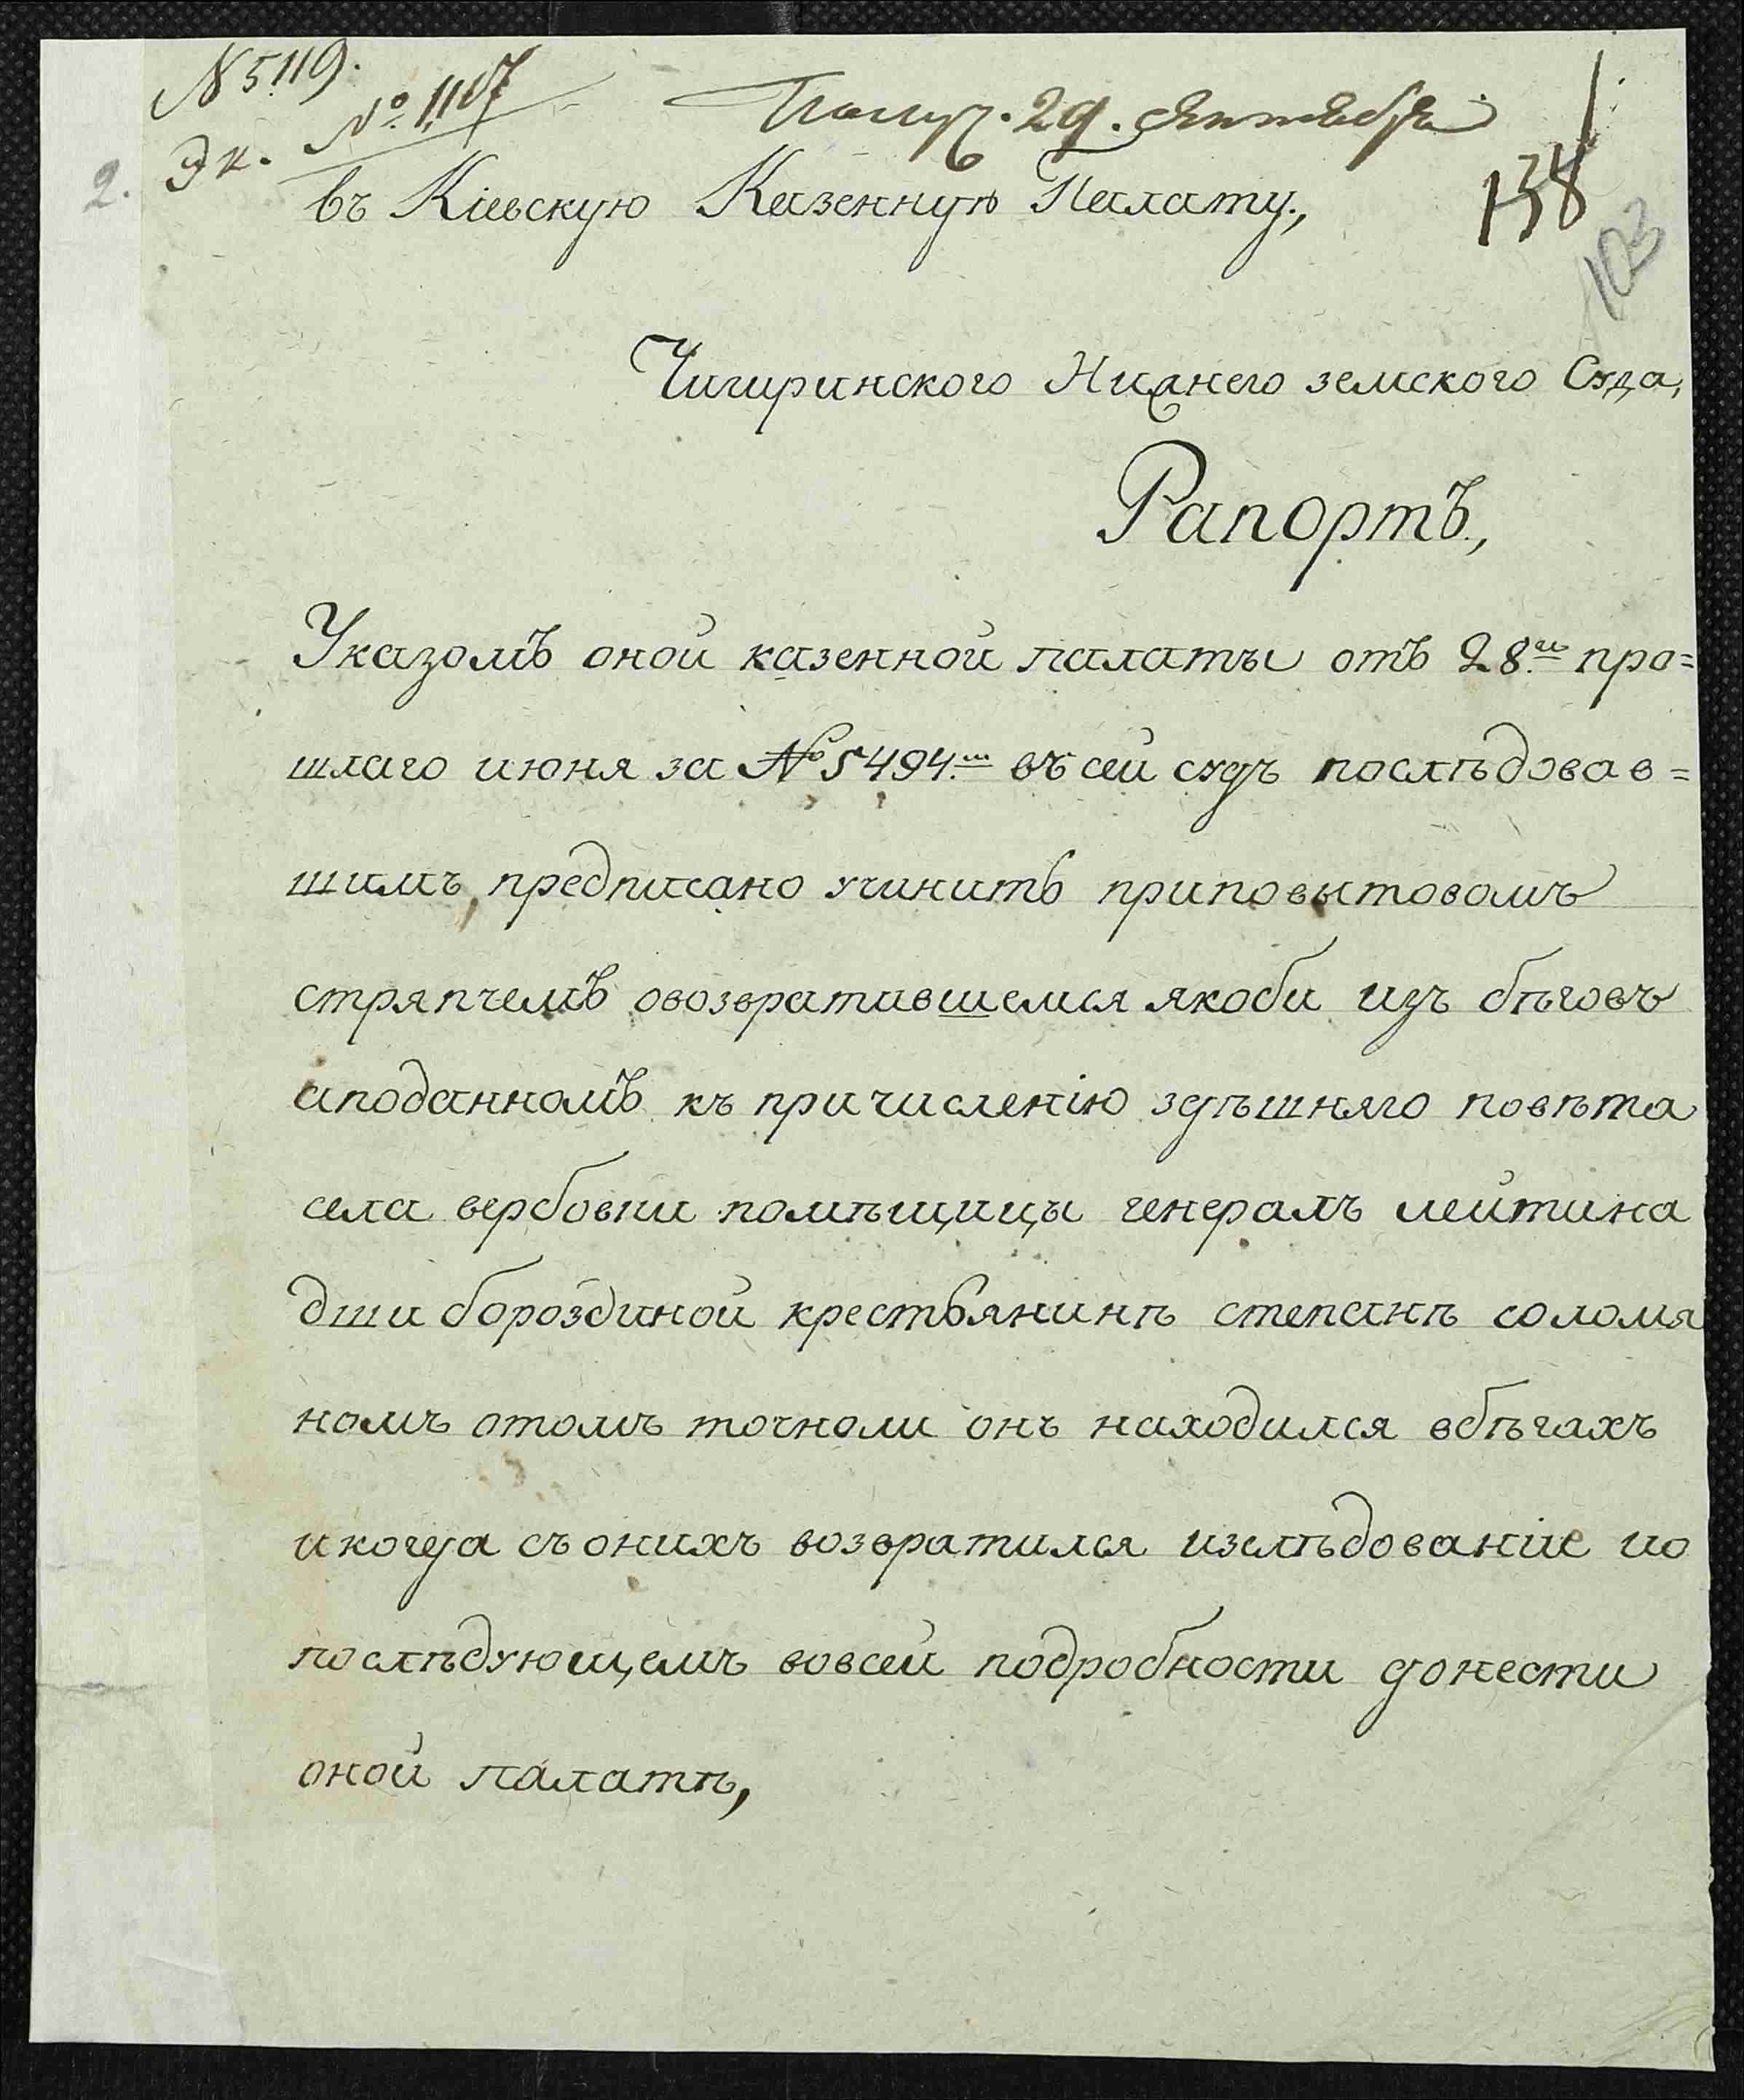 N 5119.
№ 1107
Получ. 29. сентября
Эк.
2.
138
103
въ Кіевскую Казенную Палату,
Чигиринского Нижнего земского Суда,
Рапортъ,
Указомъ оной казенной палаты отъ 28го про=
шлаго июня за № 5494м въ сей судъ послѣдовав=
шимъ, предписано учинить приповытовомъ
стряпчемъ овозвратившемся якоби изъ бѣговъ
иподанномъ къ причисленію здѣшняго повѣта
села вербовки помѣщицы генералъ лейтина
дши бороздиной крестьянинѣ степанѣ соломя
номъ отомъ точноли онъ находился вбѣгахъ
икогда съ онихъ возвратился изслѣдованіе ио
послѣдующемъ вовсей подробности донести
оной палатѣ,